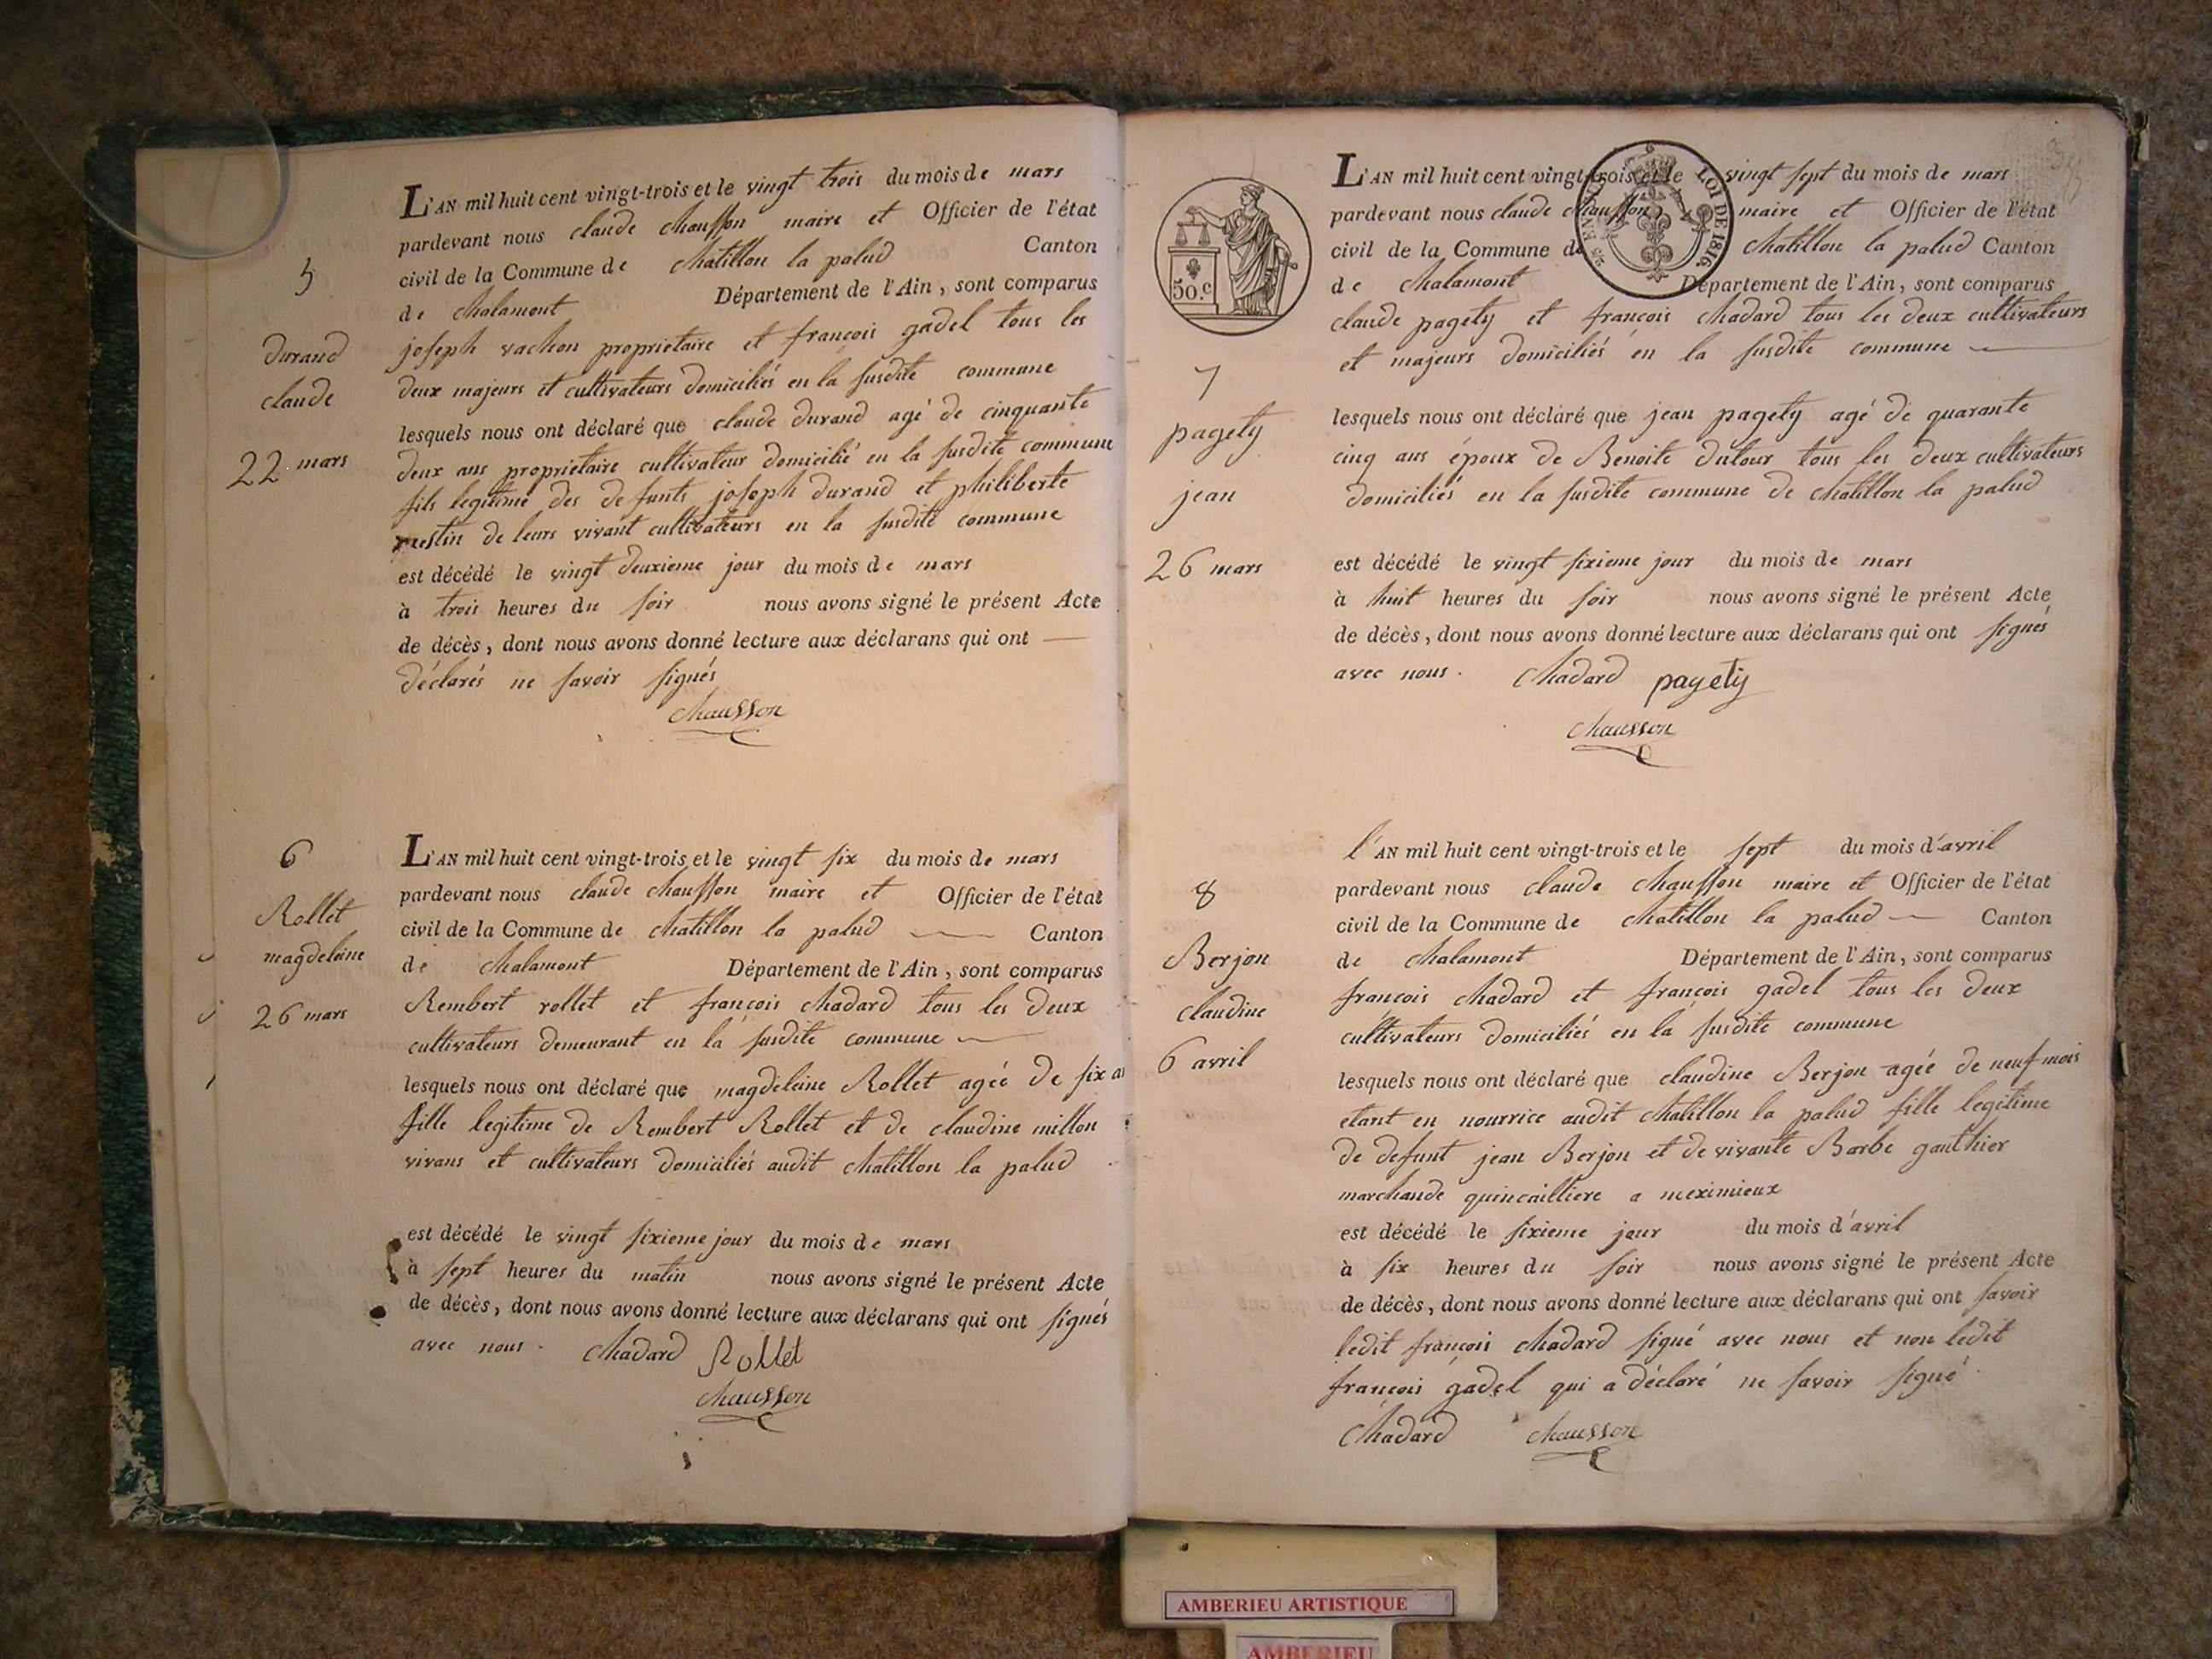 5
durand
claude
22 mars
L'AN mil huit cent vingt-trois et le vingt trois du mois de mars
pardevant nous claude chausson maire et Officier de l'état
civil de la Commune de chatillon la palud Canton
de chalamont Département de l'Ain, sont comparus
joseph vachon proprietaire et françois gadel tous les
deux majeurs et cultivateurs domiciliés en la susdite commune
lesquels nous ont déclaré que claude durand agé de cinquante
deux ans proprietaire cultivateur domicilié en la susdite commune
fils legitime des defunts joseph durand et philiberte
de leurs vivant cultivateurs en la susdite commune
est décédé le vingt deuxieme jour du mois de mars
à trois heures du soir nous avons signé le présent Acte
de décès, dont nous avons donné lecture aux déclarans qui ont
déclarés ne savoir signés
chausson
6
Rollet
magdeleine
26 mars
L'AN mil huit cent vingt-trois et le vingt six du mois de mars
pardevant nous claude chausson maire et Officier de l'état
civil de la Commune de chatillon la palud Canton
de chalamont Département de l'Ain, sont comparus
Rembert rollet et françois chadard tous les deux
cultivateurs demeurant en la susdite commune
lesquels nous ont déclaré que magdeleine Rollet agée de six
fille legitime de Rembert Rollet et de claudine millon
vivans et cultivateurs domiciliés audit chatillon la palud
est décédé le vingt sixieme jour du mois de mars
à sept heures du matin nous avons signé le présent Acte
de décès, dont nous avons donné lecture aux déclarans qui ont signés
avec nous. chadard Rollet
chausson
50.C
LOI DE 1816
7
pagety
jean
26 mars
L'AN mil huit cent vingt-trois et le vingt sept du mois de mars
pardevant nous claude chausson maire et Officier de l'état
civil de la Commune de chatillon la palud Canton
de chalamont Département de l'Ain, sont comparus
claude pagety et françois chadard tous les deux cultivateurs
et majeurs domiciliés en la susdite commune
lesquels nous ont déclaré que jean pagety agé de quarante
cinq ans époux de Benoite dutour tous les deux cultivateurs
domiciliés en la susdite commune de chatillon la palud
est décédé le vingt sixieme jour du mois de mars
à huit heures du soir nous avons signé le présent Acte
de décès, dont nous avons donné lecture aux déclarans qui ont signés
avec nous. chadard pagety
chausson
8
Berjon
claudine
6 avril
l'AN mil huit cent vingt-trois et le sept du mois d'avril
pardevant nous claude chausson maire et Officier de l'état
civil de la Commune de chatillon la palud Canton
de chalamont Département de l'Ain, sont comparus
françois chadard et françois gadel tous les deux
cultivateurs domiciliés en la susdite commune
lesquels nous ont déclaré que claudine Berjon agée de neuf mois
etant en nourrice audit chatillon la palud fille legitime
de defunt jean Berjon et de vivante Barbe gauthier
marchande quincailliere a meximieux
est décédé le sixieme jour du mois d'avril
à six heures du soir nous avons signé le présent Acte
de décès, dont nous avons donné lecture aux déclarans qui ont savoir
ledit françois chadard signé avec nous et non ledit
françois gadel qui a déclaré ne savoir signé.
chadard chausson
AMBERIEU ARTISTIQUE
AMBERIEU